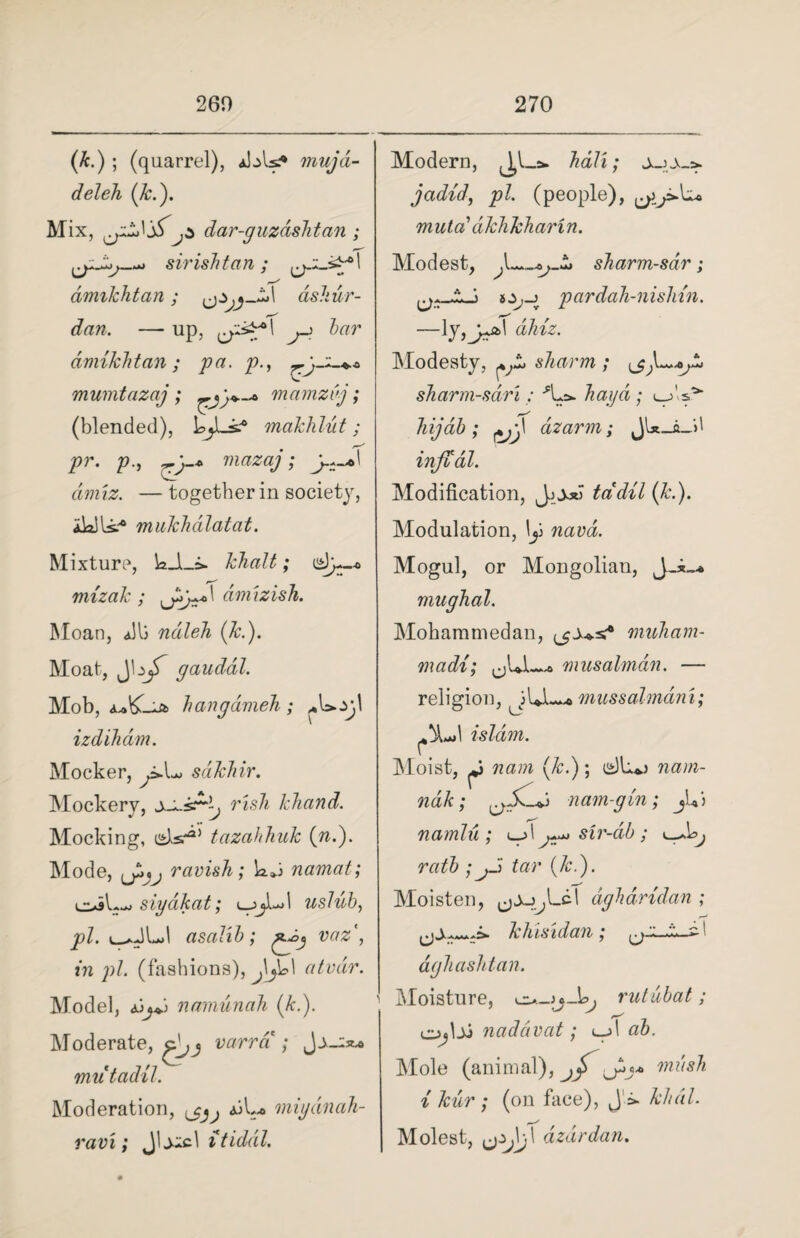 269
270
(k.) ; (quarrel), مجادله mujá-
deleh (k.).
Mix, درگذاشتن dar-guzáshtan ;
سرشتن sirishtan ; آمیختن
ámíkhtan ; آشوردن áshúr-
dan. — up, بر آمیختن bar
ámíkhtan ; pa. p., ممتزج
mumtazaj ; ممزوج mamzúj ;
(blended), مخلوط makhlút ;
pr. p., مزج mazaj ; آمیز
ámíz. — together in society,
مخالطت mukhálatat.
Mixture, خلط khalt ; میزك
mízak ; آمیزش ámízish.
Moan, ناله náleh (k.).
Moat, گودال gaudál.
Mob, هنگامه hangámeh ; ازدحام
izdihám.
Mocker, ساخر sákhir.
Mockery, ریشخند rísh khand.
Mocking, تضحك tazahhuk (n.).
Mode, روش ravish ; نمط namat;
سیاقت siyákat ; اسلوب uslúb,
pl. اسالیب asalíb ; وضع vaz',
in pl. (fashions), اطوار atvár.
Model, نمونه namúnah (k.).
Moderate, وراع varrá' ; معتدل
mu'tadil.
Moderation, میانه روی miyánah-
raví ; اعتدال i'tidál.
Modern, حالی hálí ; جدید
jadíd, pl. (people), متاخرین
muta'ákhkharín.
Modest, شرمسار sharm-sár ;
پرده نشین pardah-nishín.
—ly, آهیز áhíz.
Modesty, شرم sharm ; شرمساری
sharm-sárí ; حیاء hayá ; حجاب
hijáb ; آزرم ázarm ; انفعال
infi'ál.
Modification, تعدیل ta'díl (k.).
Modulation, نوا navá.
Mogul, or Mongolian, مغل
mughal.
Mohammedan, محمدی muham-
madí; مسلمان musalmán. —
religion, مسلمانی mussalmání;
اسلام islám.
Moist, نم nam (k.) ; نمناك nam-
nák ; نمگین nam-gín ; نملو
namlú ; سیرآب sír-áb ; رطب
ratb ; تر tar (k.).
Moisten, آغاریدن ághárídan ;
خسیدن khisídan ; آغشتن
ághashtan.
Moisture, رطوبت rutúbat ;
نداوت nadávat ; آب ab.
Mole (animal), موش کور músh
í kúr ; (on face), خال khál.
Molest, آزاردن ázárdan.